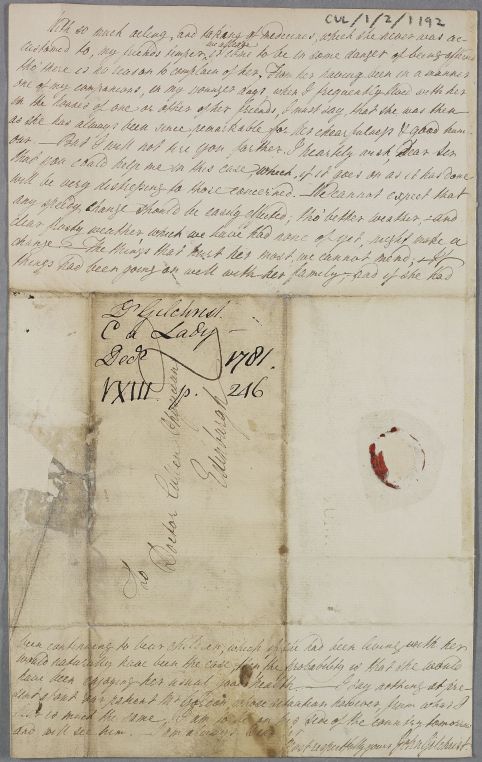 CUL/1/2/1192
With so much acling, and taking of medicines, which she never was ac-
customed to, my friends temper, is come to be in some danger of being
tho' there is no reason to complain of her, From her having been in a manner
one of my companions, in my younger days, when I frequently lived with her
in the houses of one or other of her friends, I must say, that she was then
as she has always been since, remarkable for her chearfulness & good hum
our. — But I will not tire you farther. I heartily wish Dear Sir
that you could help me in this case which, if it goes on as it has done
will be very distressing to those concerned. — We cannot expect that
any speedy change should be easily effected; tho' better weather, and
clear frosty weather which we have had none of yet, might make a
change — The things that hurt her most, we cannot mend; — If
things had been going on well with her family, and if she had
Dr Gilchrist
C a Lady —
Decr 1781.
VXIII p. 246
To
Doctor Cullen Physician
Edinburgh
been continuing to bear children, which if she had been living with her
would naturally have been the case then the probability is that she would
have been enjoying her usual good health. — I say nothing at pre-
sent about our patient Mr whose situation however from what I
hear is much the same, I am to be on side of the country tomorrow
and will see him. — I am always Dear Sir
Most respectfully yours John Gilchrist